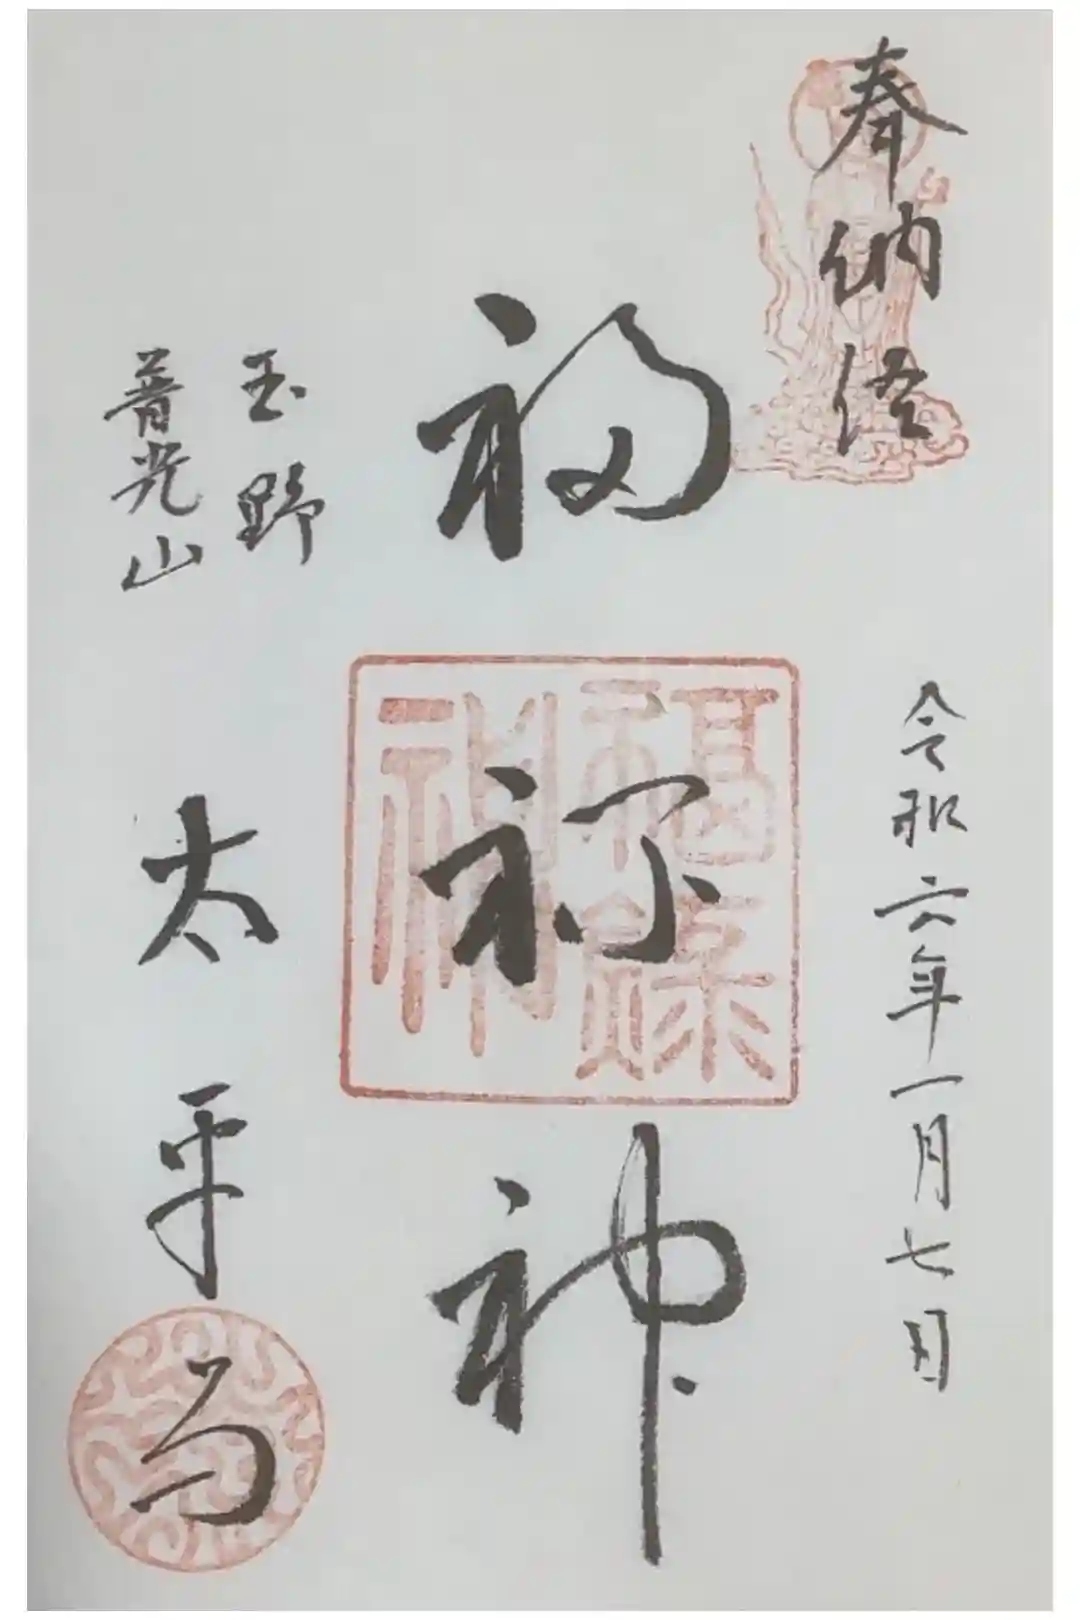 奉納経
令和六年一月七日
福禄神
福祿神
玉野
普光山
太平寺